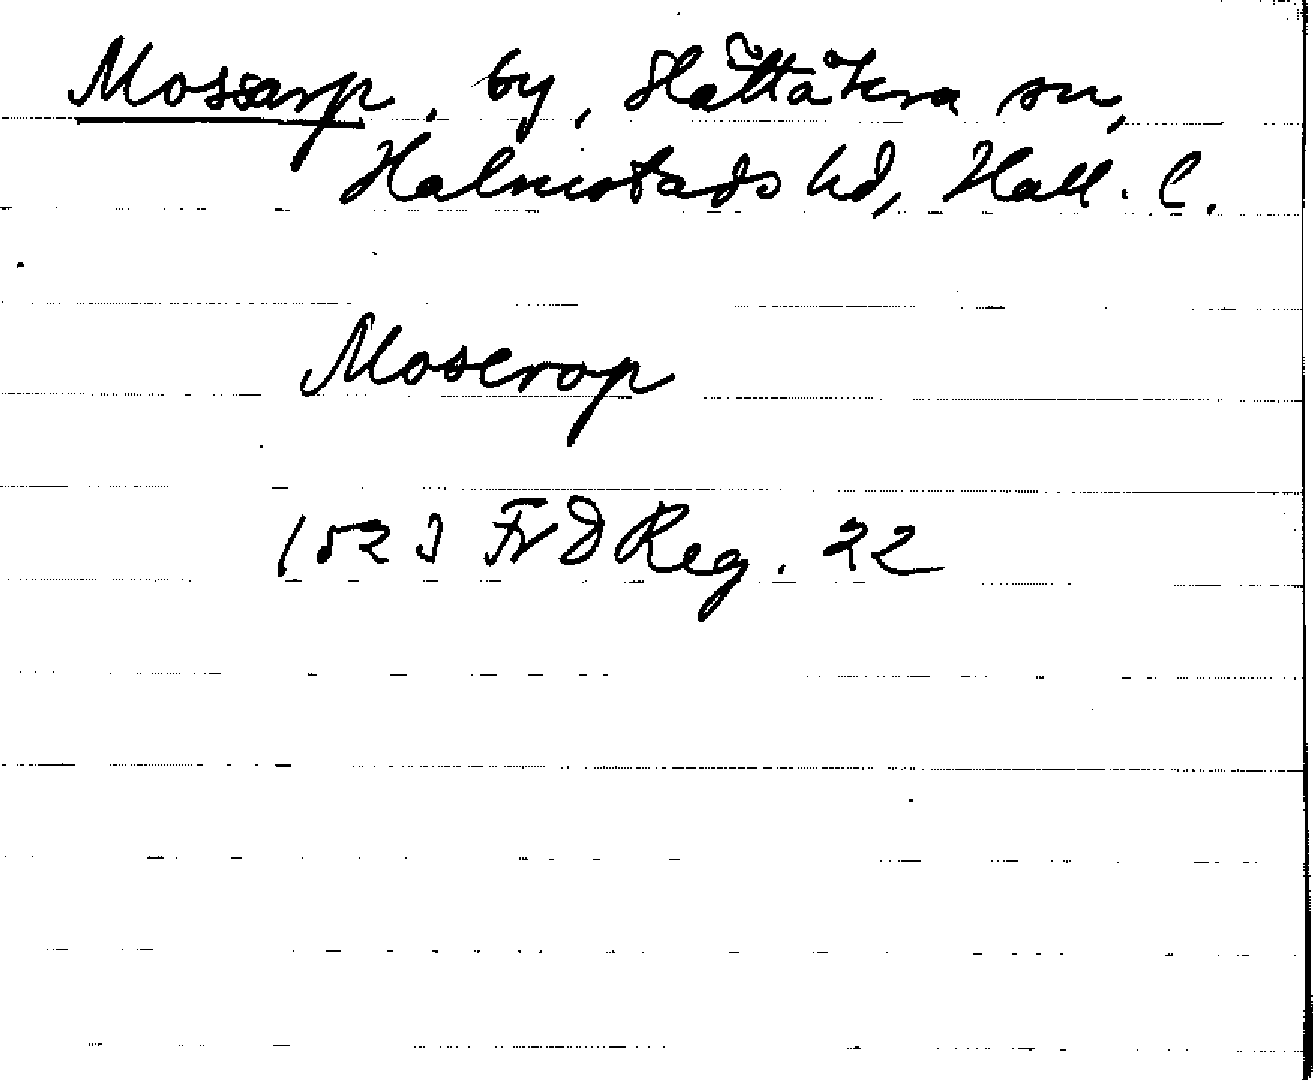 Mossarp, by, Slättåkra sn,
Halmstads hd, Hall. l.
Moserop
1523 FrDReg. 22